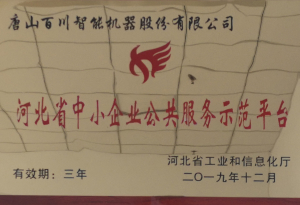 唐山百川智能机器股份有限公司
河北省中小企业公共服务示范平台
河北省工业和信息化厅
有效期：三年
二〇一九年十二月